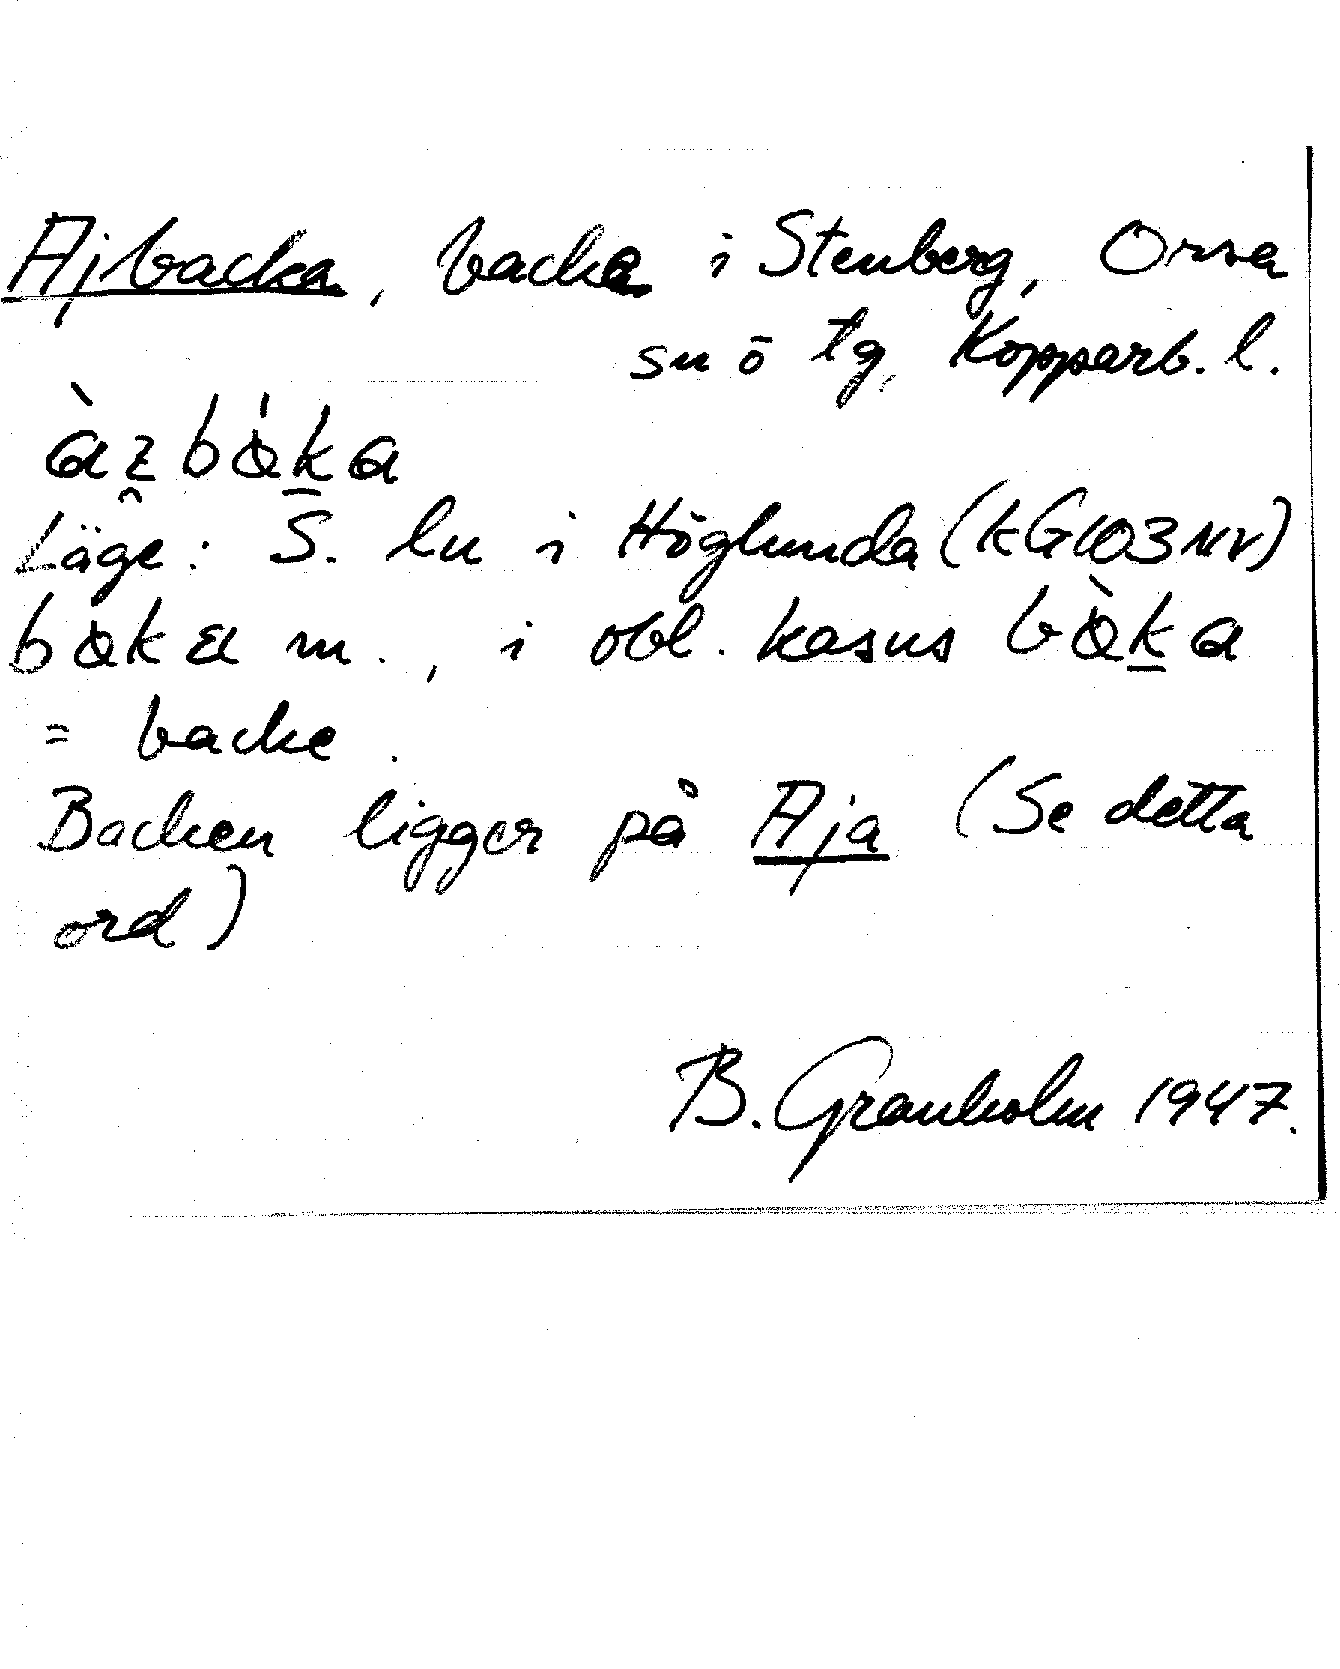 Ajbacka, backe i Stenberg, Orsa
sn ö tg, Kopparb. l.
Läge: S. lu i Höglunda (kG103NV)
m., i obl. kasus
= backe.
Backen ligger på Aja (Se detta
ord)
B. Granholm 1947.